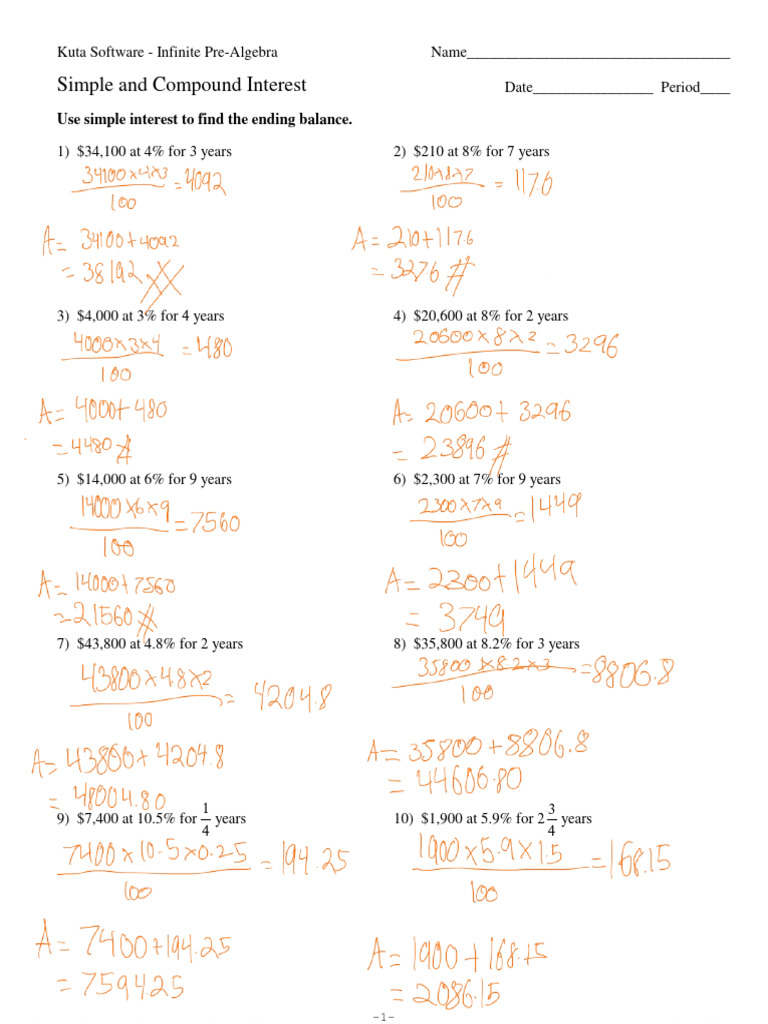 Kuta Software - Infinite Pre-Algebra Name___________________________________
Simple and Compound Interest
Date________________ Period____
Use simple interest to find the ending balance.
1) $34,100 at 4% for 3 years
34100×4×3/100 = 4092
A = 34100+4092
= 38192
2) $210 at 8% for 7 years
210×8×7/100 = 117.6
A = 210+117.6
= 3276 #
3) $4,000 at 3% for 4 years
4000×3×4/100 = 480
A = 4000+480
= 4480 #
4) $20,600 at 8% for 2 years
20600×8×2/100 = 3296
A = 20600+3296
= 23896 #
5) $14,000 at 6% for 9 years
14000×6×9/100 = 7560
A = 14000+7560
= 21560 #
6) $2,300 at 7% for 9 years
2300×7×9/100 = 1449
A = 2300+1449
= 3749
7) $43,800 at 4.8% for 2 years
43800×4.8×2/100 = 4204.8
A = 43800+4204.8
= 48004.80
8) $35,800 at 8.2% for 3 years
35800×8.2×3/100 = 8806.8
A = 35800+8806.8
= 44606.80
9) $7,400 at 10.5% for 1/4 years
7400×10.5×0.25/100 = 194.25
A = 7400+194.25
= 7594.25
10) $1,900 at 5.9% for 2 3/4 years
1900×5.9×1.5/100 = 168.15
A = 1900+168.15
= 2086.15
-1-